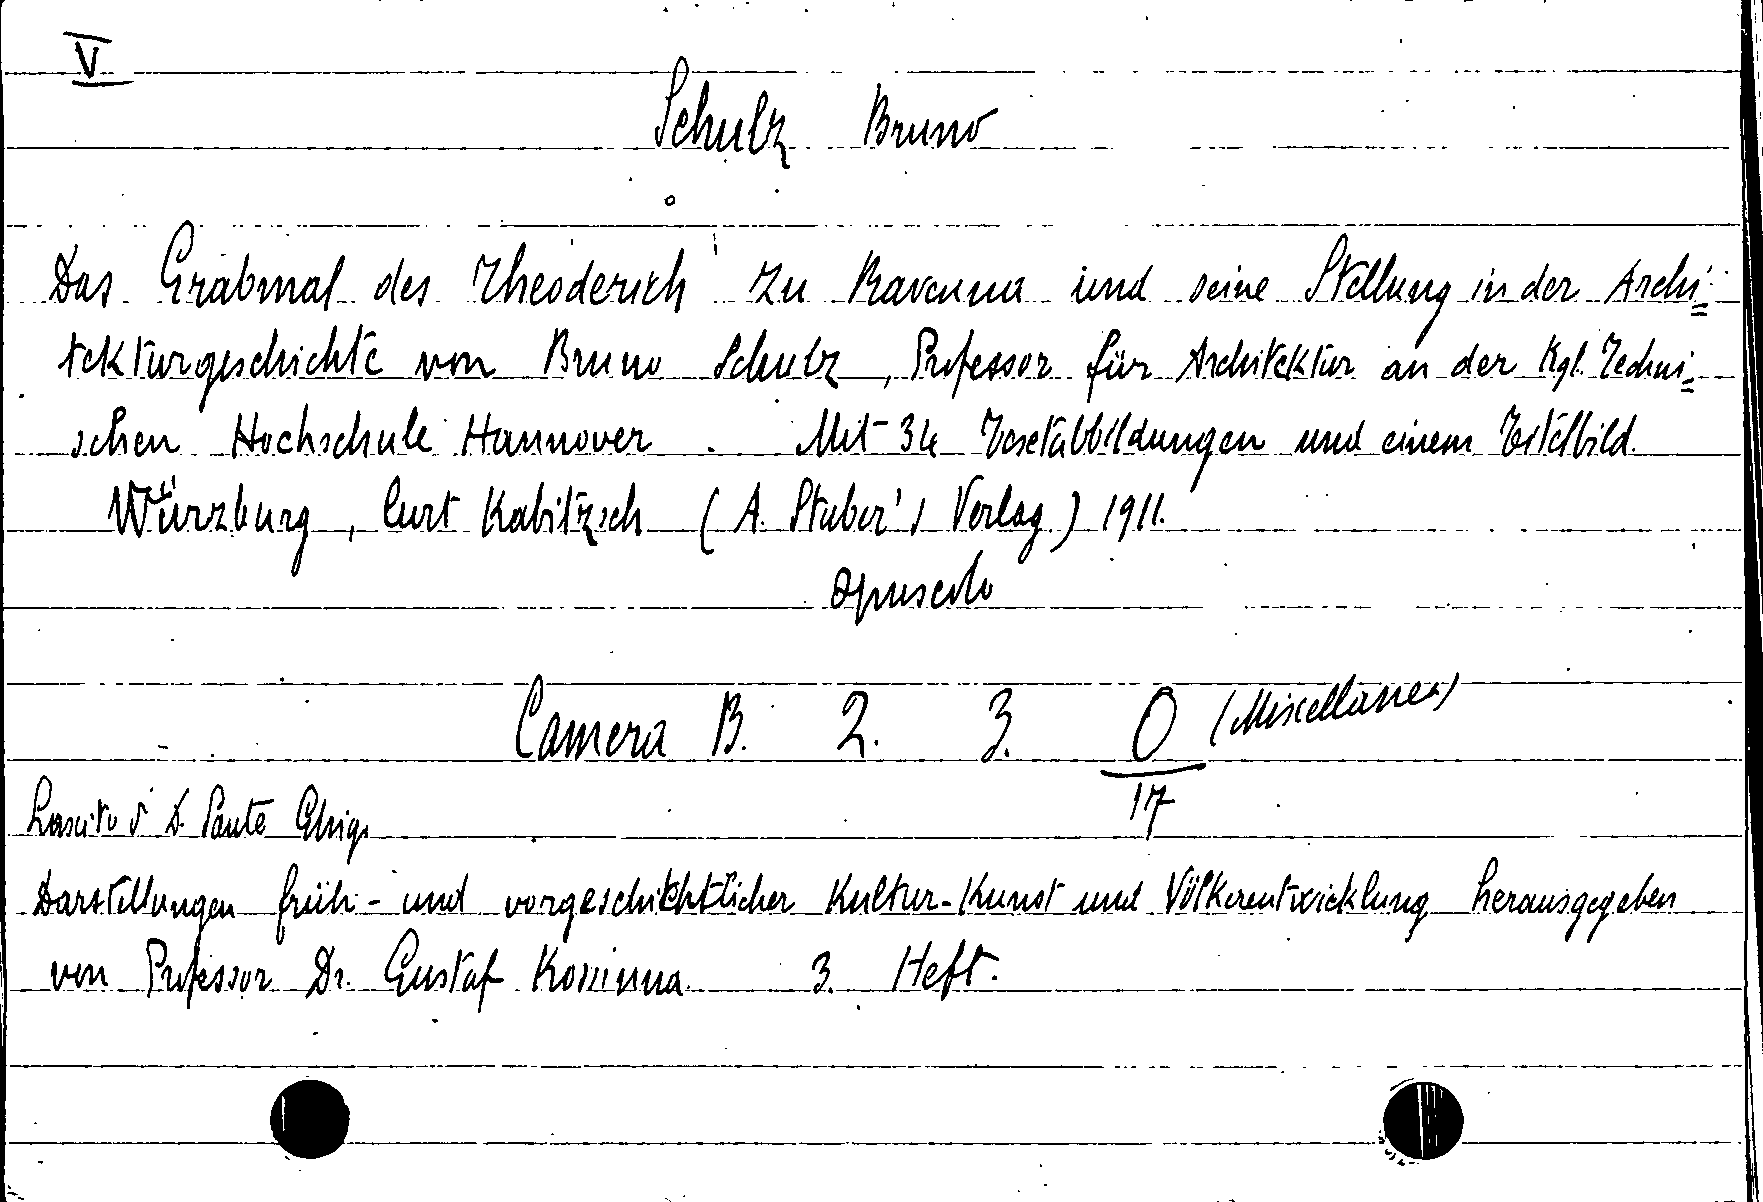 V
Schulz Bruno
Das Grabmal des Theoderich zu Ravenna und seine Stellung in der Archi=
tekturgeschichte von Bruno Schulz, Professor für Architektur an der Kgl. Techni=
schen Hochschule Hannover. Mit 34 Textabbildungen und einem Titelbild.
Würzburg, Curt Kabitzsch (A. Stuber's Verlag) 1911.
opuscolo
Camera B. 2. 3. O (Miscellanea)
17
Lascito D. Sante Ghigi
Darstellungen früh- und vorgeschichtlicher Kultur-Kunst und Völkerentwicklung herausgegeben
von Professor Dr. Gustaf Kossinna 3. Heft.